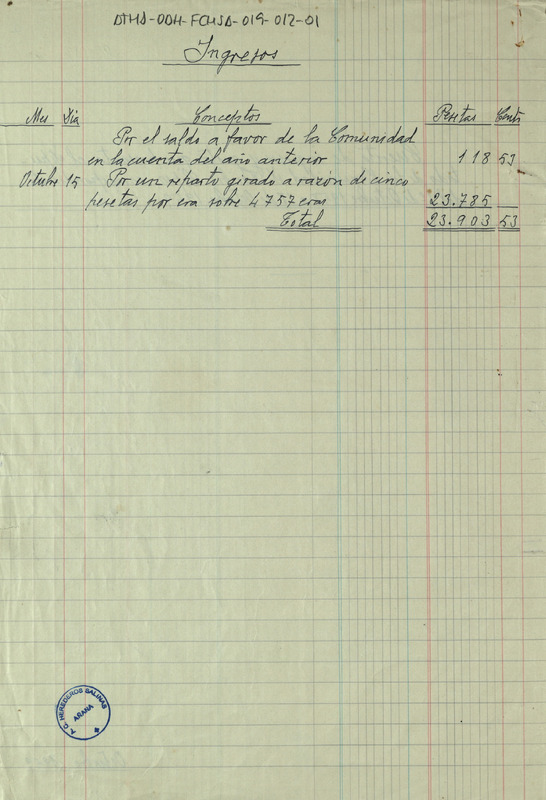 ATHA-DDH-FCHSA-019-012-01
Ingresos
Mes Dia Conceptos Pesetas Cents
Por el saldo a favor de la Comunidad
en la cuenta del año anterior 118 53
Octubre 15 Por un reparto girado a razón de cinco
pesetas por era sobre 4757 eras 23.785 __
Total 23.903 53
A.C. HEREDEROS SALINAS
AÑANA